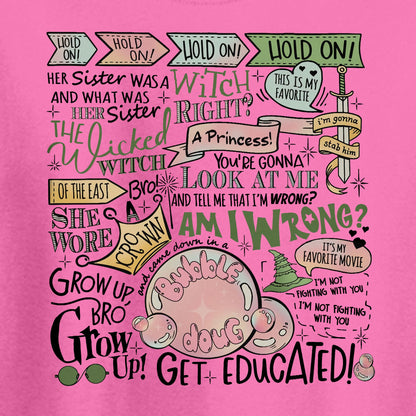 HOLD ON!
HOLD ON!
HOLD ON!
HOLD ON!
HER Sister WAS A WITCH
AND WHAT WAS HER Sister RIGHT?
THIS IS MY FAVORITE
A Princess!
i'm gonna
stab him
THE Wicked WITCH
YOU'RE GONNA
LOOK AT ME
OF THE EAST
Bro!
AND TELL ME THAT I'M WRONG?
AM I WRONG?
SHE WORE A CROWN
and came down in a
Bubble
doug
IT'S MY FAVORITE MOVIE
I'M NOT FIGHTING WITH YOU
I'M NOT FIGHTING WITH YOU
GROW UP BRO
Grow Up!
GET EDUCATED!